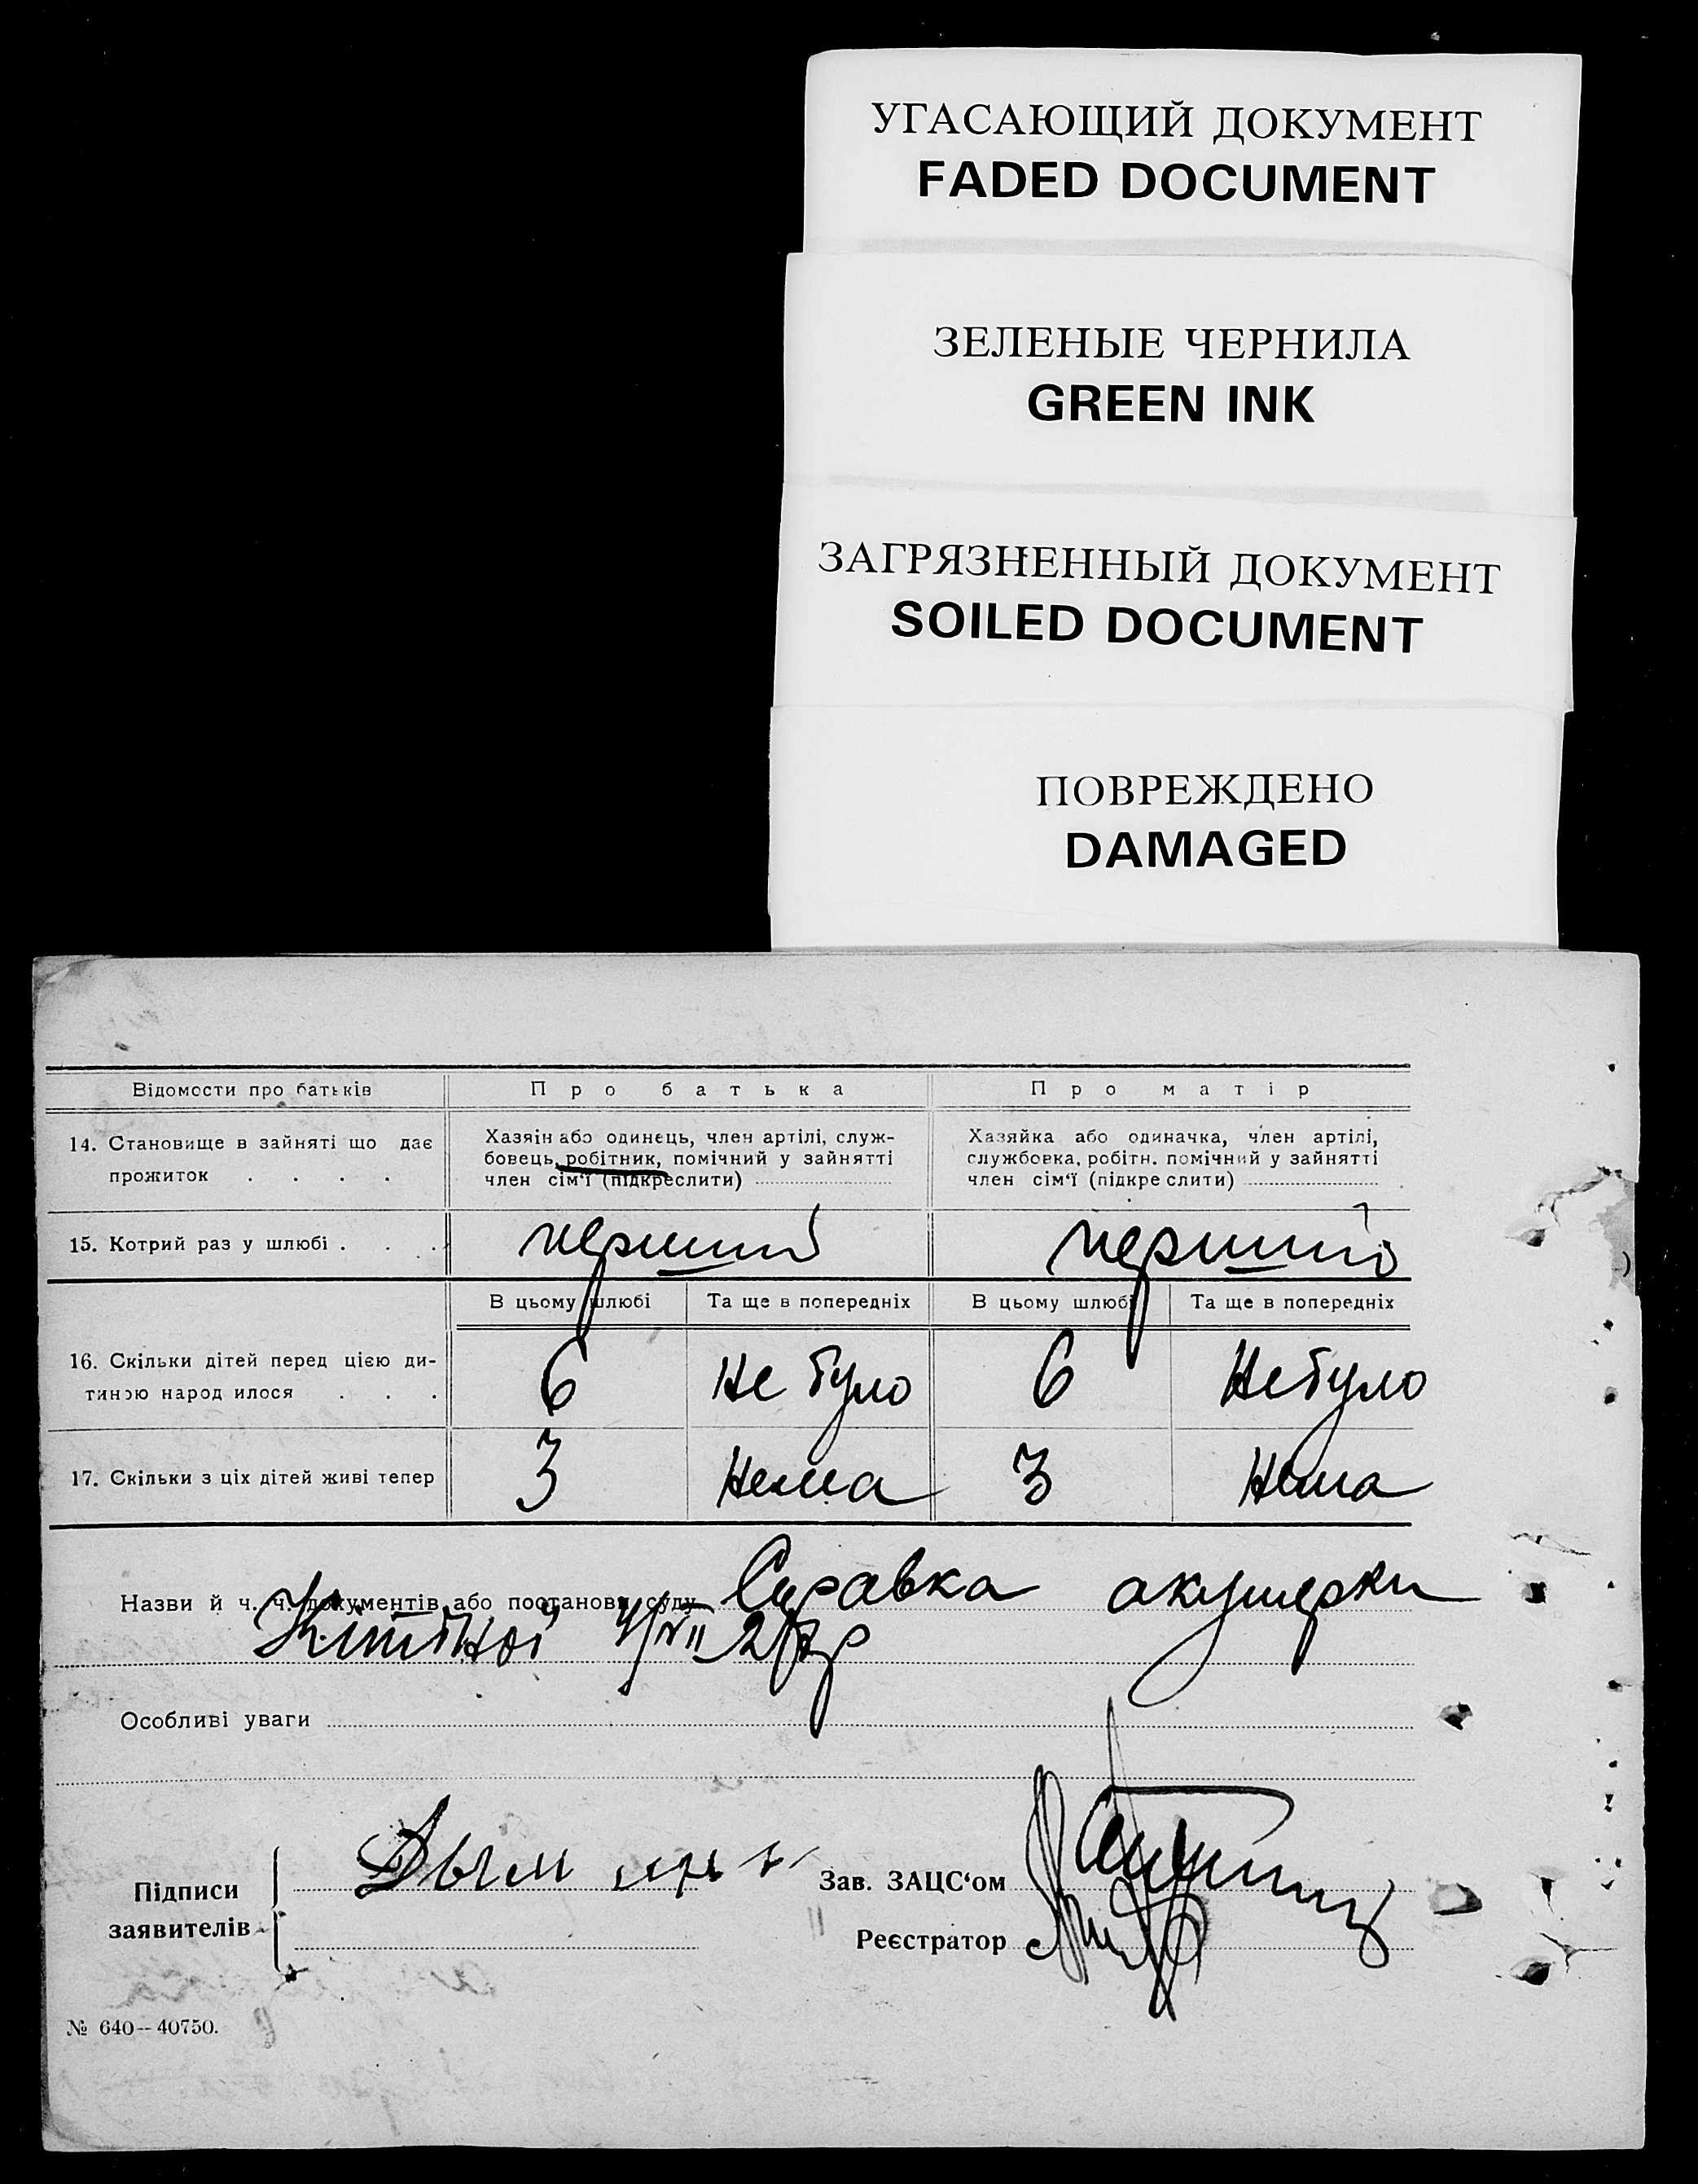 УГАСАЮЩИЙ ДОКУМЕНТ
FADED DOCUMENT
ЗЕЛЕНЫЕ ЧЕРНИЛА
GREEN INK
ЗАГРЯЗНЕННЫЙ ДОКУМЕНТ
SOILED DOCUMENT
ПОВРЕЖДЕНО
DAMAGED
Відомости про батьків
Про батька
Про матір
14. Становище в зайняті що дає
прожиток . . . .
Хазяін або одинець, член артілі, служ-
бовець, робітник, помічний у зайнятті
член сім'ї (підкреслити)
Хазяйка або одиначка, член артілі,
службовка, робітн. помічний у зайнятті
член сім'ї (підкре слити)
15. Котрий раз у шлюбі . . .
перший
перший
В цьому шлюбі
Та ще в попередніх
В цьому шлюбі
Та ще в попередніх
16. Скільки дітей перед цією ди-
тиною народ илося . . .
6
Не було
6
Не було
17. Скільки з ціх дітей живі тепер
3
Нема
3
Нема
Назви й ч. ч. документів або постанови суду Справка акушерки
Особливі уваги
Підписи
заявителів
Зав. ЗАЦС'ом
Реєстратор
№ 640—40750.